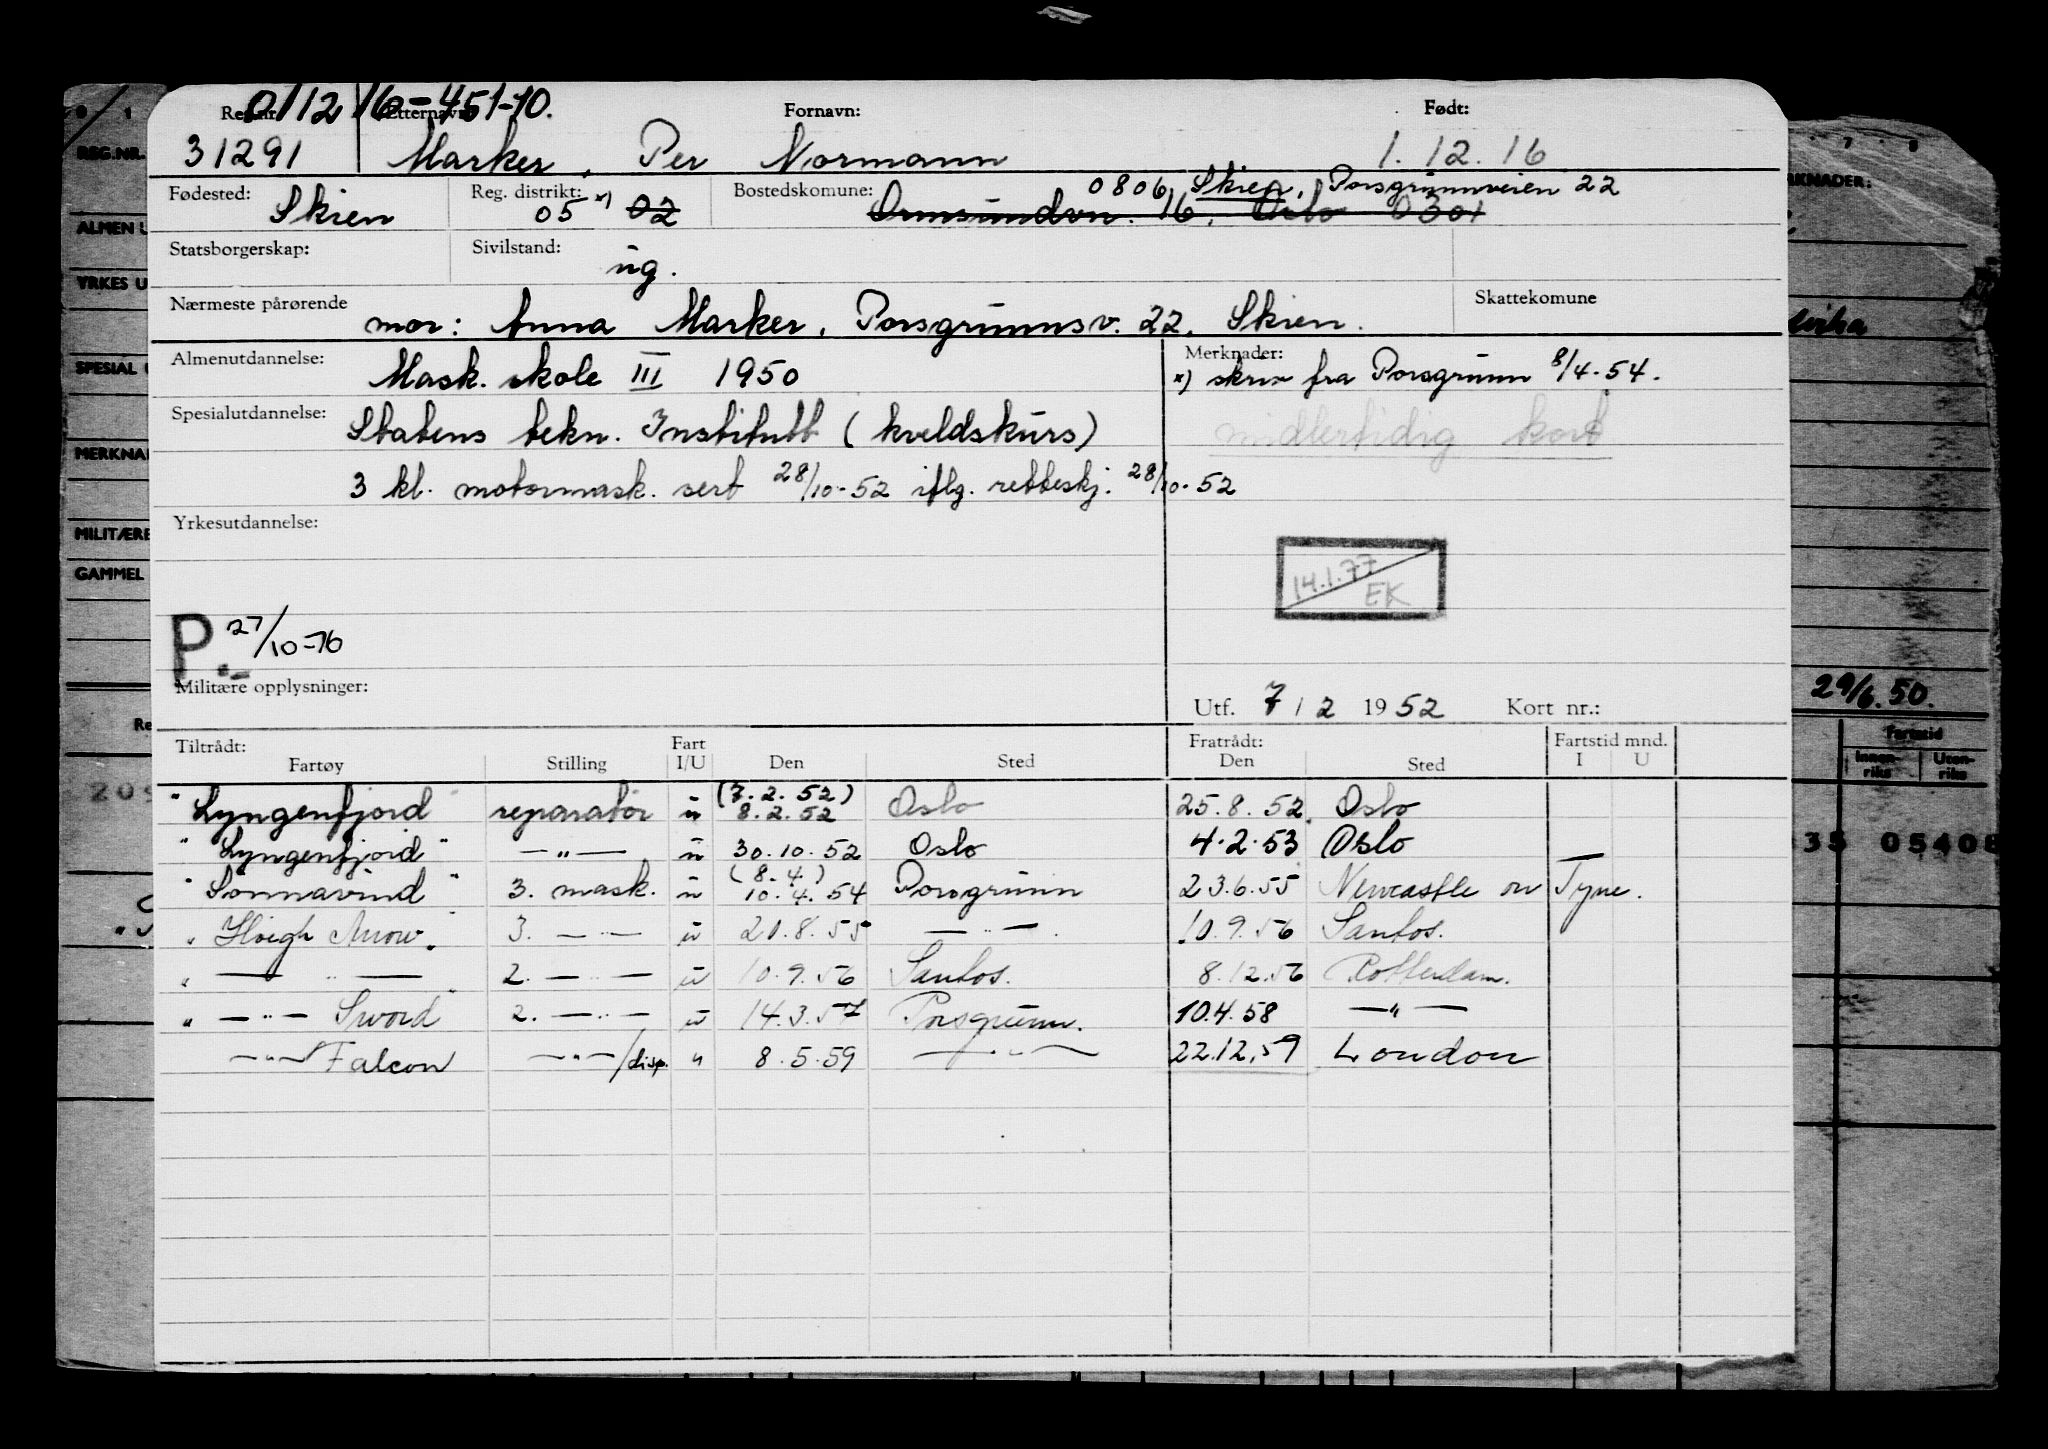 011216-451-10.
Reg. nr. Etternavn: Fornavn: Født:
31291 Marker, Per Normann 1.12.16
Fødested: Skien Reg. distrikt: 05 x) 02 Bostedskomune: 0806 Skien, Porsgrunnveien 22
Ormsundvn. 16, Oslo 0301
Statsborgerskap: Sivilstand: ug.
Nærmeste pårørende mor: Anna Marker, Porsgrunnsv. 22, Skien. Skattekomune
Almenutdannelse: Mask. skole III 1950 Merknader:
x) skriv fra Porsgrunn 8/4-54.
Spesialutdannelse: Statens tekn. Institutt (kveldskurs) midlertidig kort
3 kl. motormask. sert 28/10-52 iflg. retteskj. 28/10-52
Yrkesutdannelse:
14.1.77
EK
P.- 27/10-76
Militære opplysninger:
Utf. 7/2 1952 Kort nr.:
Tiltrådt: Fart Fratrådt: Fartstid mnd.
Fartøy Stilling I/U Den Sted Den Sted I U
"Lyngenfjord" reparatør u (7.2.52) 8.2.52 Oslo 25.8.52. Oslo
"Lyngenfjord" —"— u 30.10.52 Oslo 4.2.53 Oslo
"Sonnavind" 3. mask. u (8.4) 10.4.54 Porsgrunn 23.6.55 Newcastle on Tyne.
"Høegh Arrow" 3. —"— u 21.8.55 —"—. 10.9.56 Santos.
" —"— 2. —"— u 10.9.56 Santos. 8.12.56 Rotterdam.
" —"— Sword" 2. —"— u 14.3.57 Porsgrunn. 10.4.58 —"—
—"— Falcon —"—/disp. " 8.5.59 —"— 22.12.59 London
REG.NR.
ALMEN U
YRKES U
SPESIAL U
MERKNA
MILITÆRE
GAMMEL
RKNADER:
29/6.50.
Fartstid
Innen-riks Uten-riks
35 05408